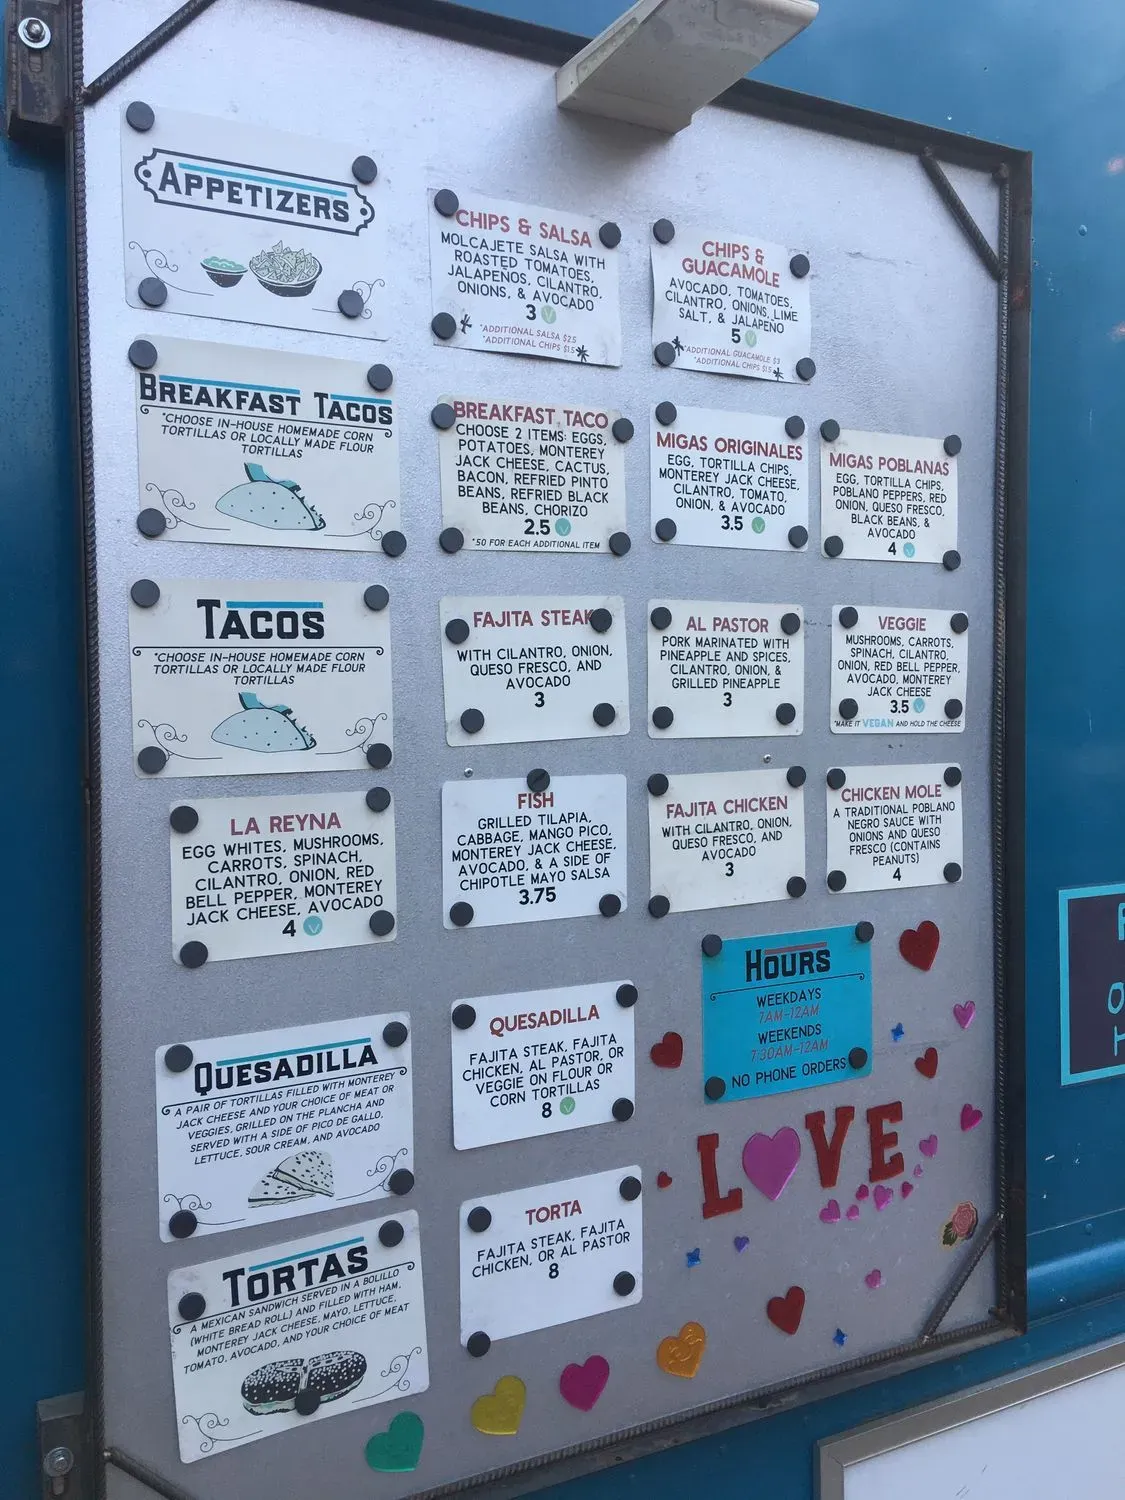 APPETIZERS
CHIPS & SALSA
MOLCAJETE SALSA WITH
ROASTED TOMATOES,
JALAPEÑOS, CILANTRO,
ONIONS, & AVOCADO
3 V
*ADDITIONAL SALSA $.25
*ADDITIONAL CHIPS $1.5
CHIPS &
GUACAMOLE
AVOCADO, TOMATOES,
CILANTRO, ONIONS, LIME
SALT, & JALAPENO
5 V
*ADDITIONAL GUACAMOLE $3
*ADDITIONAL CHIPS $1.5
BREAKFAST TACOS
*CHOOSE IN-HOUSE HOMEMADE CORN
TORTILLAS OR LOCALLY MADE FLOUR
TORTILLAS
BREAKFAST TACO
CHOOSE 2 ITEMS: EGGS,
POTATOES, MONTEREY
JACK CHEESE, CACTUS,
BACON, REFRIED PINTO
BEANS, REFRIED BLACK
BEANS, CHORIZO
2.5 V
*.50 FOR EACH ADDITIONAL ITEM
MIGAS ORIGINALES
EGG, TORTILLA CHIPS,
MONTEREY JACK CHEESE,
CILANTRO, TOMATO,
ONION, & AVOCADO
3.5 V
MIGAS POBLANAS
EGG, TORTILLA CHIPS,
POBLANO PEPPERS, RED
ONION, QUESO FRESCO,
BLACK BEANS, &
AVOCADO
4 V
TACOS
*CHOOSE IN-HOUSE HOMEMADE CORN
TORTILLAS OR LOCALLY MADE FLOUR
TORTILLAS
FAJITA STEAK
WITH CILANTRO, ONION,
QUESO FRESCO, AND
AVOCADO
3
AL PASTOR
PORK MARINATED WITH
PINEAPPLE AND SPICES,
CILANTRO, ONION, &
GRILLED PINEAPPLE
3
VEGGIE
MUSHROOMS, CARROTS,
SPINACH, CILANTRO,
ONION, RED BELL PEPPER,
AVOCADO, MONTEREY
JACK CHEESE
3.5 V
*MAKE IT VEGAN AND HOLD THE CHEESE
LA REYNA
EGG WHITES, MUSHROOMS,
CARROTS, SPINACH,
CILANTRO, ONION, RED
BELL PEPPER, MONTEREY
JACK CHEESE, AVOCADO
4 V
FISH
GRILLED TILAPIA,
CABBAGE, MANGO PICO,
MONTEREY JACK CHEESE,
AVOCADO, & A SIDE OF
CHIPOTLE MAYO SALSA
3.75
FAJITA CHICKEN
WITH CILANTRO, ONION,
QUESO FRESCO, AND
AVOCADO
3
CHICKEN MOLE
A TRADITIONAL POBLANO
NEGRO SAUCE WITH
ONIONS AND QUESO
FRESCO (CONTAINS
PEANUTS)
4
HOURS
WEEKDAYS
7AM-12AM
WEEKENDS
7:30AM-12AM
NO PHONE ORDERS
QUESADILLA
A PAIR OF TORTILLAS FILLED WITH MONTEREY
JACK CHEESE AND YOUR CHOICE OF MEAT OR
VEGGIES, GRILLED ON THE PLANCHA AND
SERVED WITH A SIDE OF PICO DE GALLO,
LETTUCE, SOUR CREAM, AND AVOCADO
QUESADILLA
FAJITA STEAK, FAJITA
CHICKEN, AL PASTOR, OR
VEGGIE ON FLOUR OR
CORN TORTILLAS
8 V
LOVE
TORTAS
A MEXICAN SANDWICH SERVED IN A BOLILLO
(WHITE BREAD ROLL) AND FILLED WITH HAM,
MONTEREY JACK CHEESE, MAYO, LETTUCE,
TOMATO, AVOCADO, AND YOUR CHOICE OF MEAT
TORTA
FAJITA STEAK, FAJITA
CHICKEN, OR AL PASTOR
8